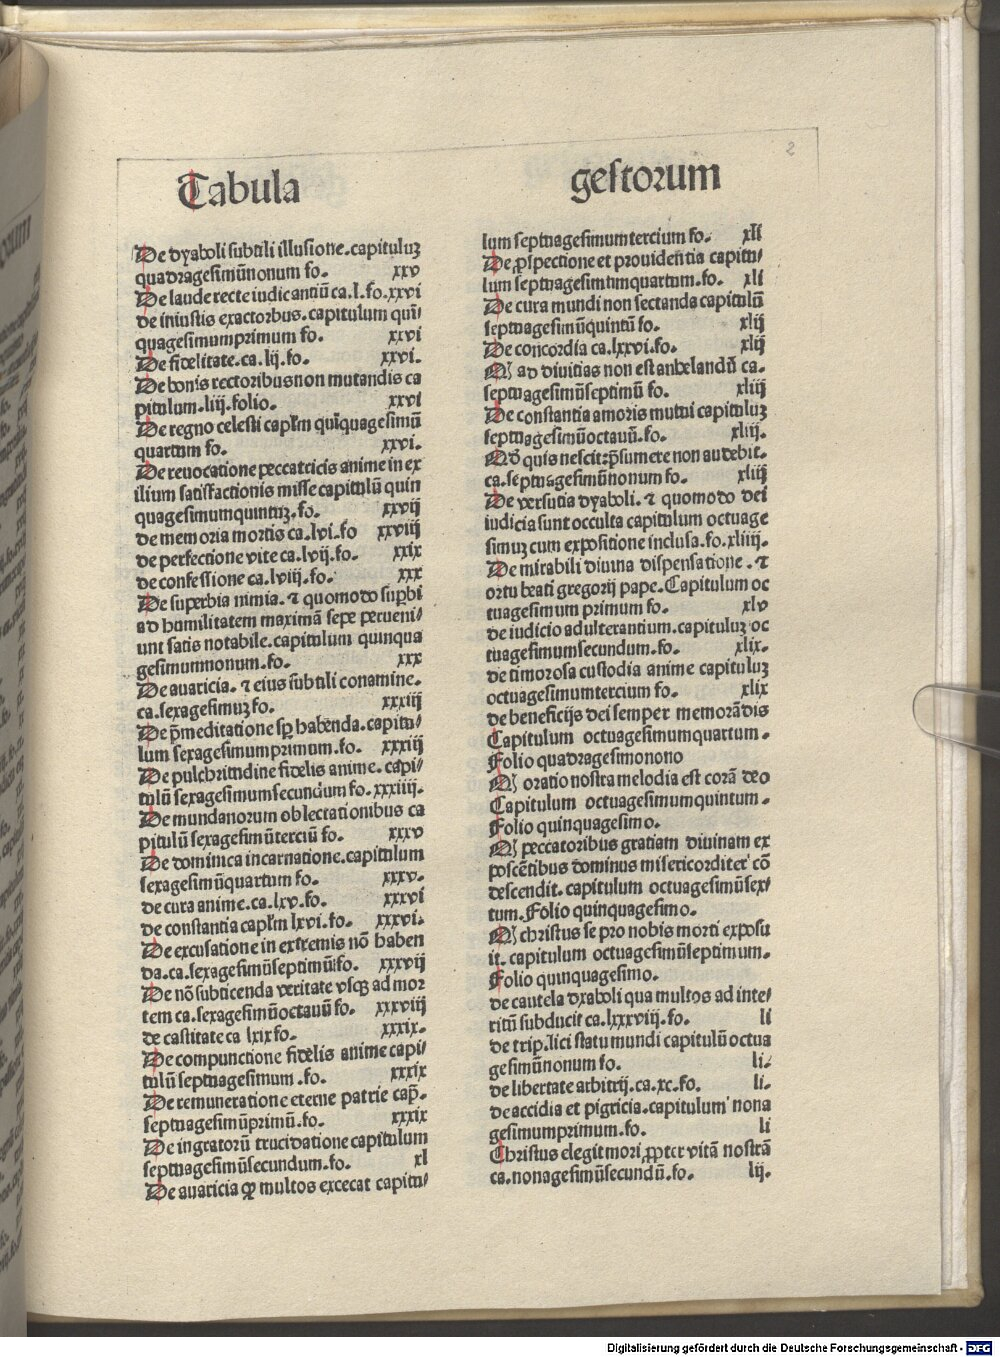 2
Tabula gestorum
De dyaboli subtili illusione.capituluꝫ
quadragesimūnonum fo. xxv
De laude recte iudicantiū ca.l.fo.xxvi
de iniustis exactorbus.capitulum quī⸗
quagesimumprimum fo. xxvi
De fidelitate.ca.lij.fo. xxvi.
De bonis rectoribusnon mutandis ca
pitulum.liij.folio. xxvi
De regno celesti capłm quīquagesimū
quartum fo. xxvi.
De reuocatione peccatricis anime in ex
ilium satisfactionis misse capitulū quin
quagesimumquintuꝫ.fo. xxvij
de memoria mortis ca.lvi.fo xxviij
de perfectione vite ca.lvij.fo. xxix
de confessione ca.lviij.fo. xxx
De superbia nimia.⁊ quomodo suꝑbi
ad humilitatem maximā sepe perueni⸗
unt satis notabile.capitulum quinqua
gesimumnonum.fo. xxx
De auaricia.⁊ eius subtili conamine.
ca.sexagesimuꝫ fo. xxxiij
De p̄meditatione sꝑ habenda.capitu⸗
lum sexagesimumprimum.fo. xxxiij
De pulchritudine fidelis anime.capi⸗
tulū sexagesimumsecundum fo.xxxiiij.
De mundanorum oblectationibus ca
pitulū sexagesimūterciū fo. xxxv
De dominica incarnatione.capitulum
sexagesimūquartum fo. xxxv.
de cura anime.ca.lxv.fo. xxxvi
de constantia capłm lxvi.fo. xxxvi.
De excusatione in extremis nō haben
da.ca.sexagesimūseptimū.fo. xxxvij
De nō subticenda veritate vsqꝫ ad mor
tem ca.sexagesimūoctauū fo. xxxviij
de castitate ca lxix fo. xxxix.
De compunctione fidelis anime capi⸗
tulū septuagesimum .fo. xxxix
De remuneratione eterne patrie cap̄.
septuagesimūprimū.fo. xxxix
De ingratorū trucidatione capitulum
septuagesimūsecundum.fo. xl
De auaricia ꝙ multos excecat capitu⸗
lum septuagesimumtercium fo. xli
De ꝓspectione et prouidentia capitu⸗
lum septuagesimumquartum.fo. xli
De cura mundi non sectanda capitulū
septuagesimūquintū fo. xlij
De concordia ca.lxxvi.fo. xlij
Ꝙ ad diuitias non est anhelandū ca.
septuagesimūseptimū fo. xliij
De constantia amoris mutui capituluꝫ
septuagesimūoctauū.fo. xliij.
ca.septuagesimūnonum fo. xliij
De versutia dyaboli.⁊ quomodo dei
iudicia sunt occulta capitulum octuage
simuꝫ cum expositione inclusa.fo.xliiij.
De mirabili diuina dispensatione.⁊
ortu beati gregorij pape.Capitulum oc
tuagesimum primum fo. xlv
de iudicio adulterantium.capituluꝫ oc
tuagesimumsecundum.fo. xlix.
de timorosa custodia anime capituluꝫ
octuagesimumtercium fo. xlix
de beneficijs dei semper memorādis
Capitulum octuagesimumquartum.
Folio quadragesimonono
Ꝙ oratio nostra melodia est corā deo
Capitulum octuagesimumquintum.
Folio quinquagesimo.
Ꝙ peccatoribus gratiam diuinam ex
poscētibus dominus misericorditer cō
descendit.capitulum octuagesimūsex⸗
tum.Folio quinquagesimo.
Ꝙ christus se pro nobis morti exposu
it.capitulum octuagesimūseptimum.
Folio quinquagesimo.
de cautela dyaboli qua multos ad inte⸗
ritū subducit ca.lxxxviij.fo. li
de triplici statu mundi capitulū octua
gesimūnonum fo. li.
de libertate arbitrij.ca.xc.fo. li.
de accidia et pigricia.capitulum nona
gesimumprimum.fo. li
Christus elegit mori ꝓpter vitā nostrā
ca.nonagesimūsecundū.fo. lij.
Digitalisierung gefördert durch die Deutsche Forschungsgemeinschaft - DFG